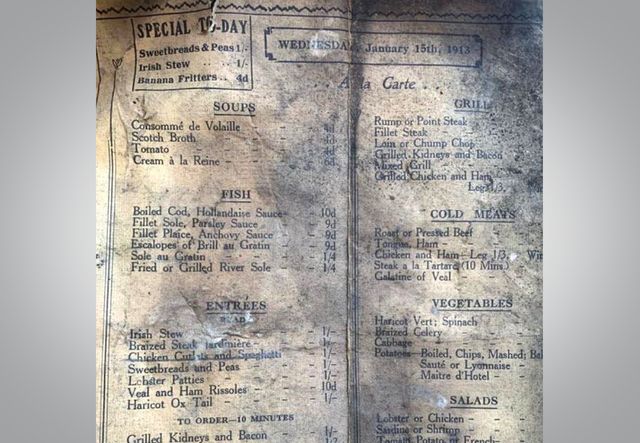 SPECIAL TO-DAY
Sweetbreads & Peas 1/-
Irish Stew .. .. 1/-
Banana Fritters .. 4d
WEDNESDAY, January 15th, 1913
A la Carte
SOUPS
Consommé de Volaille - - 4d
Scotch Broth - - 4d
Tomato - - 4d
Cream à la Reine - - 6d
FISH
Boiled Cod, Hollandaise Sauce- 10d
Fillet Sole, Parsley Sauce - 9d
Fillet Plaice, Anchovy Sauce - 9d
Escalopes of Brill au Gratin - 9d
Sole au Gratin - - - 1/4
Fried or Grilled River Sole - 1/4
ENTRÉES
READY
Irish Stew - - - 1/-
Braized Steak Jardinière - - 1/-
Chicken Cutlets and Spaghetti - 1/-
Sweetbreads and Peas - - 1/-
Lobster Patties - - 1/-
Veal and Ham Rissoles - - 10d
Haricot Ox Tail - - 1/-
TO ORDER—10 MINUTES
Grilled Kidneys and Bacon
GRILL
Rump or Point Steak
Fillet Steak
Loin or Chump Chop
Grilled Kidneys and Bacon
Mixed Grill
Grilled Chicken and Ham
Leg 1/3,
COLD MEATS
Roast or Pressed Beef -
Tongue, Ham -
Chicken and Ham—Leg 1/3, Win
Steak a la Tartare (10 Mins.)
Galatine of Veal
VEGETABLES
Haricot Vert; Spinach
Braized Celery
Cabbage
Potatoes—Boiled, Chips, Mashed;
Sauté or Lyonnaise -
Maitre d'Hotel -
SALADS
Lobster or Chicken -
Sardine or Shrimp -
Tomato, Potato or French-